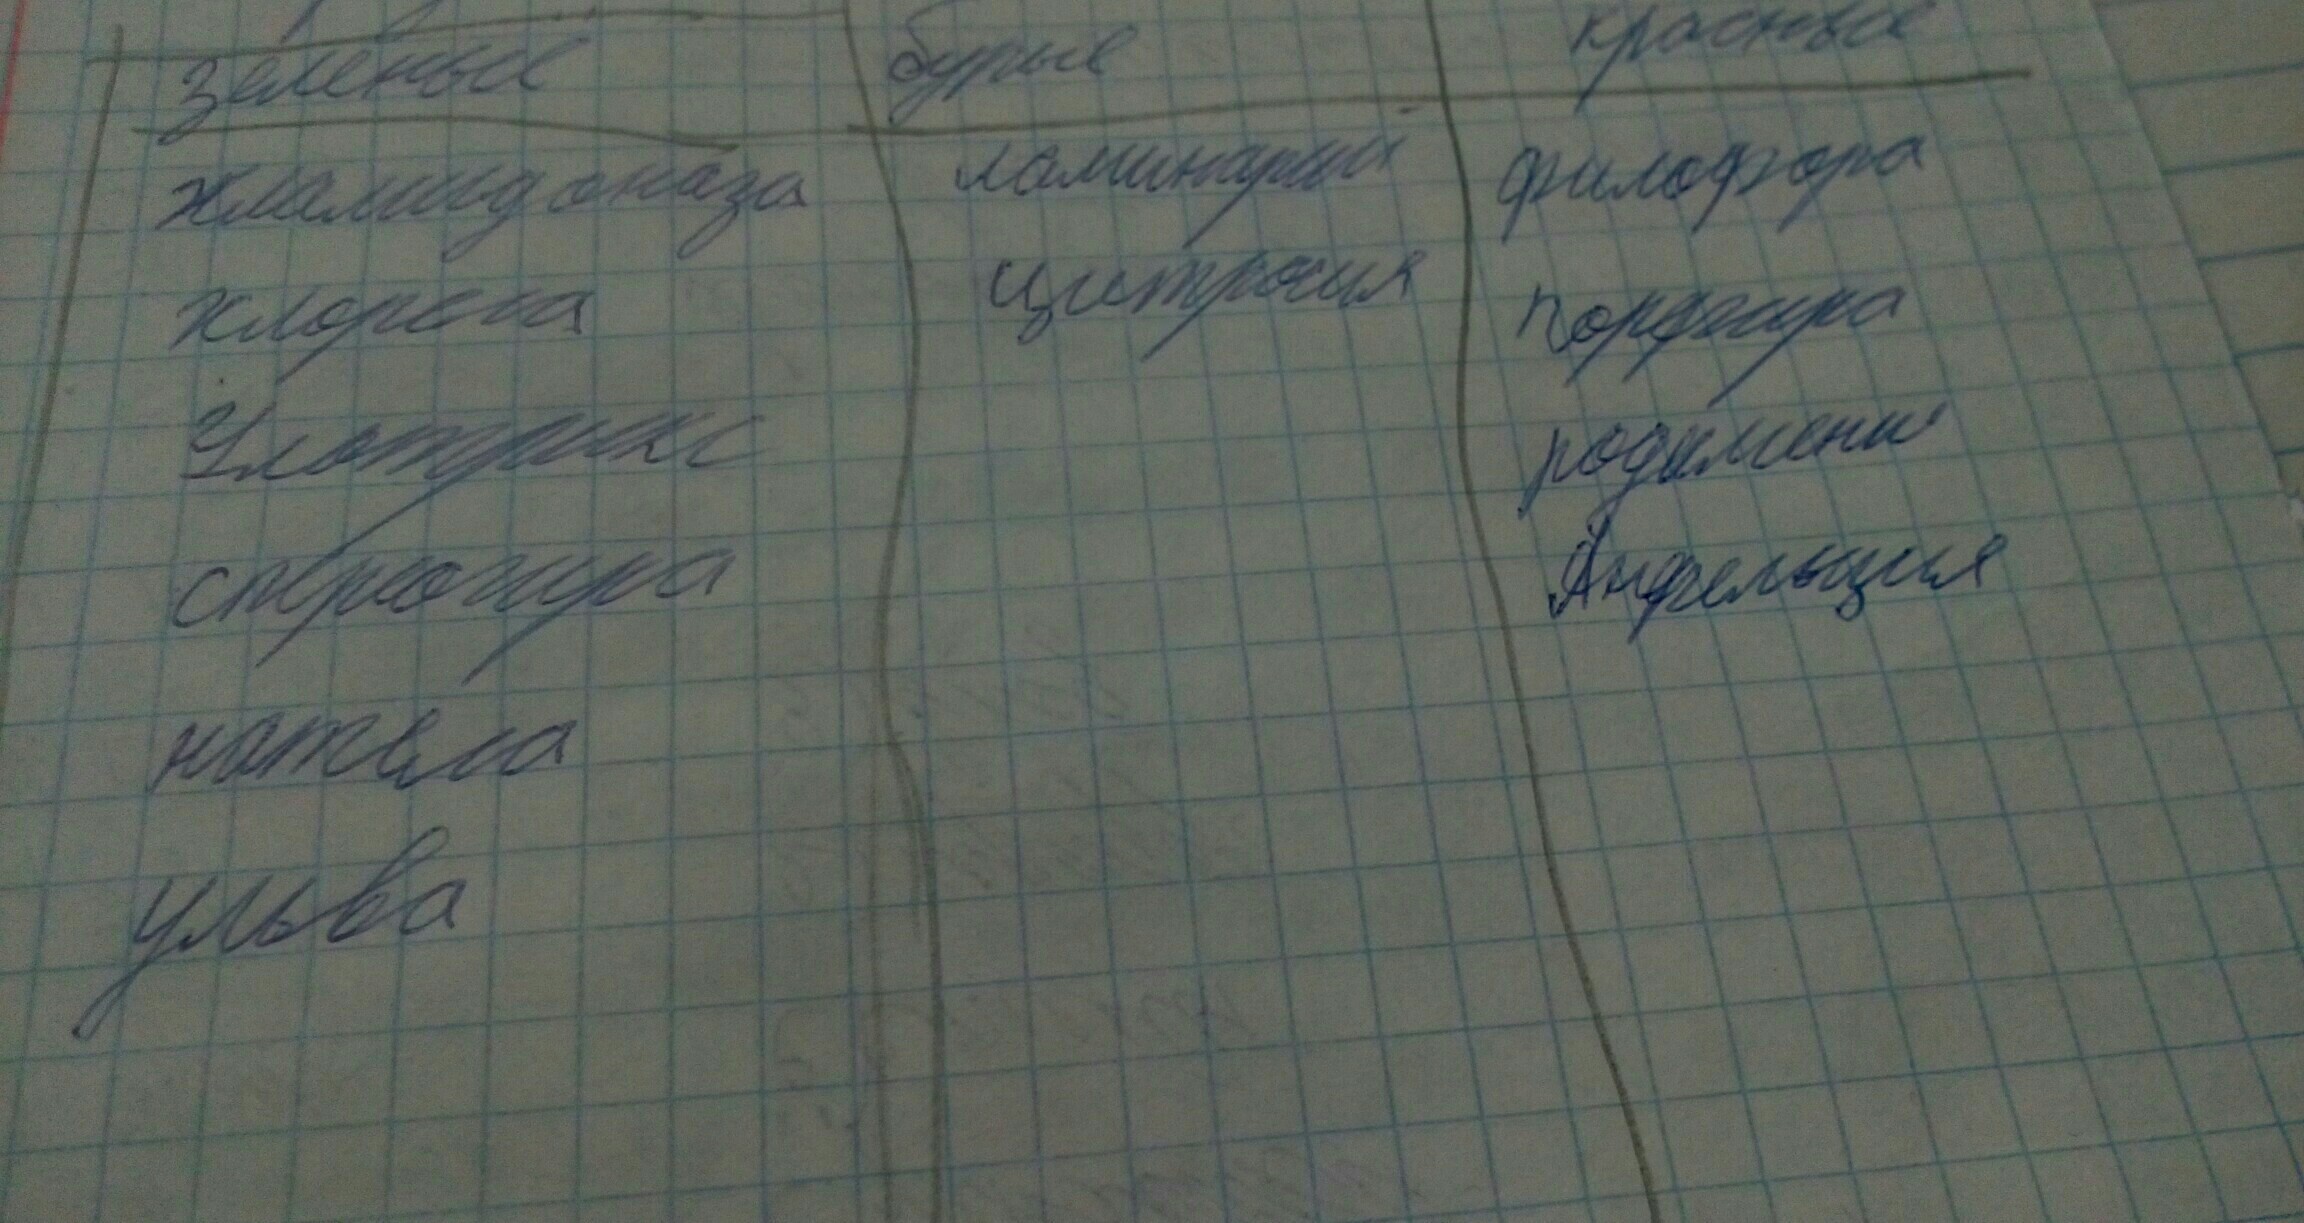 зеленые бурые красные
хламидоназа ламинарии филофора
хлорела цитрозия порфира
Улотрикс родимени
спирогира Анфельция
нотела
ульва